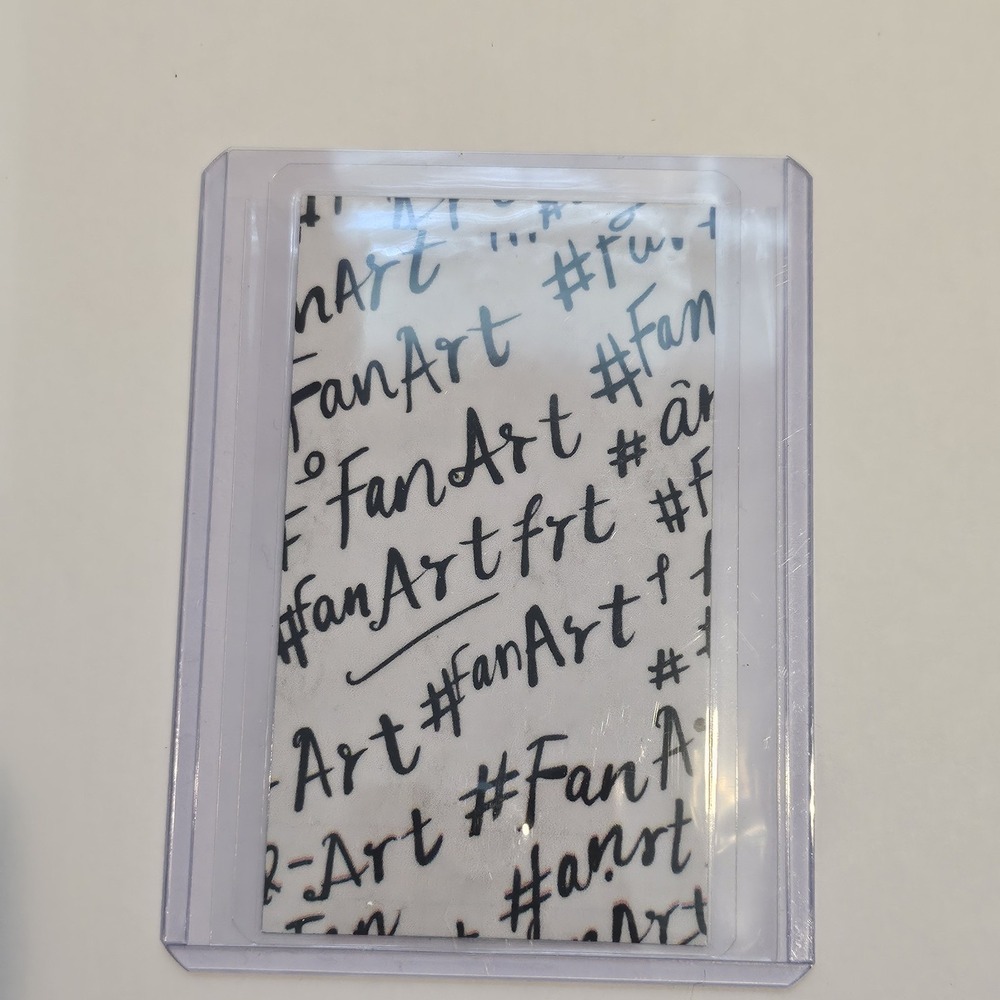 nArt
FanArt #Fan
FanArt # ân
#fanArt frt #F
#fanArt
Art #FanA
Art #anrt
Fan Art